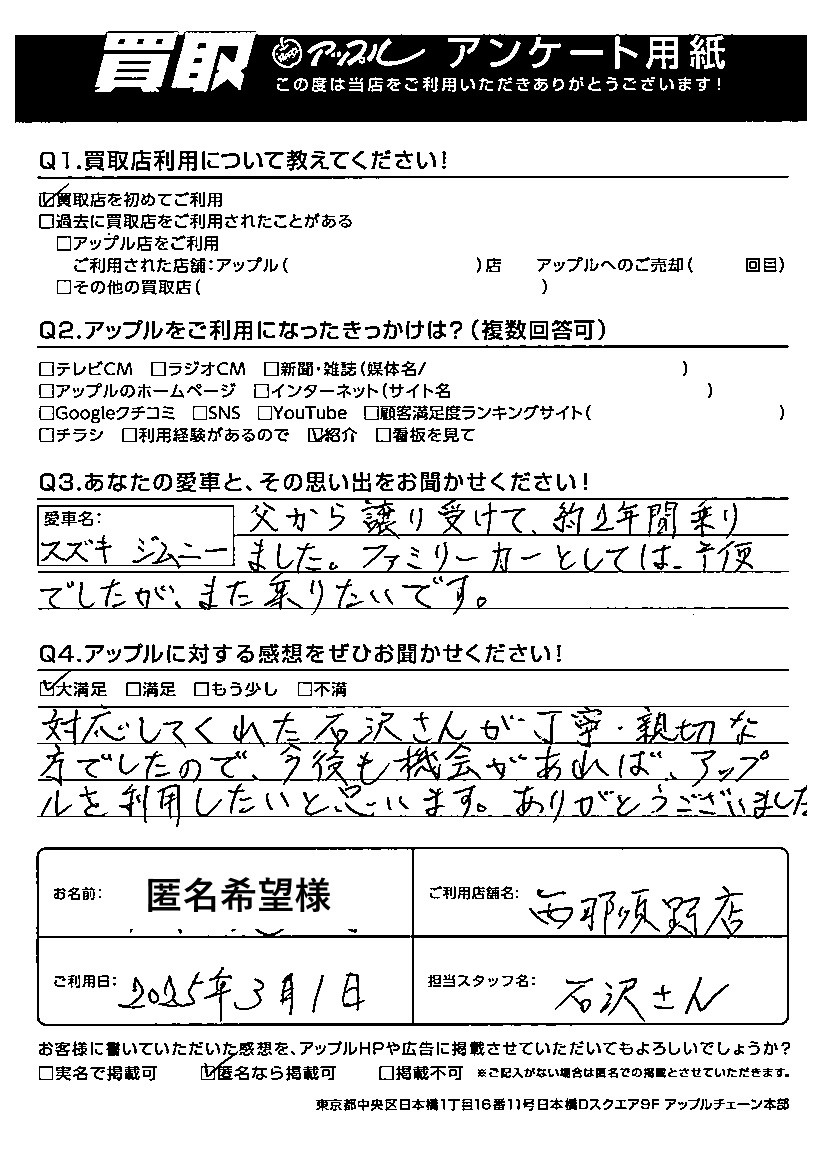 買取 アップル アンケート用紙
この度は当店をご利用いただきありがとうございます!
Q1.買取店利用について教えてください!
☑買取店を初めてご利用
□過去に買取店をご利用されたことがある
□アップル店をご利用
ご利用された店舗:アップル( )店 アップルへのご売却( 回目)
□その他の買取店( )
Q2.アップルをご利用になったきっかけは?(複数回答可)
□テレビCM □ラジオCM □新聞・雑誌(媒体名/ )
□アップルのホームページ □インターネット(サイト名 )
□Googleクチコミ □SNS □YouTube □顧客満足度ランキングサイト( )
□チラシ □利用経験があるので ☑紹介 □看板を見て
Q3.あなたの愛車と、その思い出をお聞かせください!
愛車名:
スズキ ジムニー
父から譲り受けて、約2年間乗り
ました。ファミリーカーとしては、不便
でしたが、また乗りたいです。
Q4.アップルに対する感想をぜひお聞かせください!
☑大満足 □満足 □もう少し □不満
対応してくれた石沢さんが丁寧・親切な
方でしたので、今後も機会があれば、アップ
ルを利用したいと思います。ありがとうございました
お名前: 匿名希望様 ご利用店舗名: 西那須野店
ご利用日: 2025年3月1日 担当スタッフ名: 石沢さん
お客様に書いていただいた感想を、アップルHPや広告に掲載させていただいてもよろしいでしょうか?
□実名で掲載可 ☑匿名なら掲載可 □掲載不可 ※ご記入がない場合は匿名での掲載とさせていただきます。
東京都中央区日本橋1丁目16番11号日本橋Dスクエア9F アップルチェーン本部